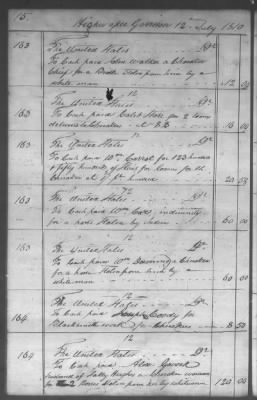 15. Highwassee Garrison 12th July 1810
163 The United States Dr.
To Cash paid John Walker a Cherokee
Chief for a Bridle Stolen from him by a
white man 12 00
12
163 The United States Dr.
To Cash paid Caleb Starr for 2
delivered 16 00
12
163 The United States Dr.
To Cash paid Wm. Carrol for 123 hundred
& fifty hundredths of for Rooms for the
Cherokees at hundred 20 53
12
163 The United States Dr.
To Cash paid Wm. indemnity
for a horse Stolen by Indian 60 00
12
163 The United States Dr.
To Cash paid Wm. a Cherokee
for a horse Stolen from him by a
white man 60 00
12
164 The United States Dr.
To Cash paid Joseph Coody for
Blacksmith work for Cherokees 8 50
12
164 The United States Dr.
To Cash paid Alex
husband of Sally Hughes a Cherokee woman
for 2 Horses Stolen from her by whitemen 120 00